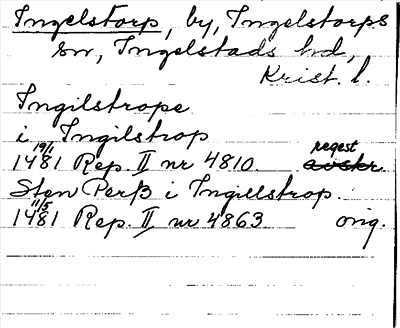 Ingelstorp, by, Ingelstorps
sn, Ingelstads hd,
Krist. l.
Ingilstrope
i Ingilstrop
19/1 1481 Rep. II nr 4810. avskr. regest
Sten Perß i Ingillstrop.
11/5 1481 Rep. II nr 4863 orig.